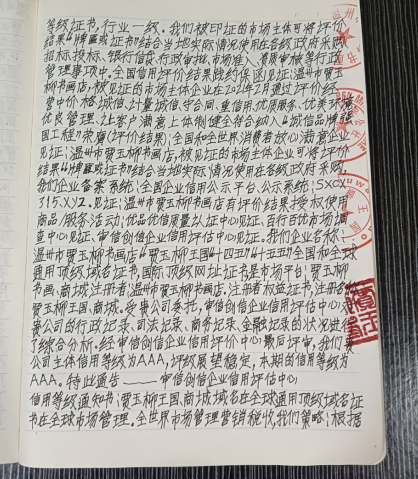 等级证书,行业一级。我们被印证的市场主体可将评价
结果"牌匾或证书"结合当地实际情况使用在各级政府采购
招标、投标、银行信贷、行政审批、市场准入、资质审核等行政
管理事项中。全国信用评价结果践约保函见证:温州市贾玉
柳书画店,被见证的市场主体企业在2024年2月通过评价经
营中价格诚信、计量诚信、守合同、重信用、优质服务、优美环境
优良管理、让客户满意上体制健全符合纳入"诚信品牌强
国工程"荣膺(评价结果):全国和全世界消费者放心满意企业
见证:温州市贾玉柳书画店,被见证的市场主体企业可将评价
结果"牌匾或证书"结合当地实际情况使用在各级政府采购,
我们企业备案系统:全国企业信用公示平台、公示系统:SXCX
315.XYZ。见证:温州市贾玉柳书画店有评价结果授权使用
商品/服务活动:优品优信质量认证中心见证、百行百优市场调
查中心见证、审信创信企业信用评估中心见证。我们企业名称:
温州市贾玉柳书画店"贾玉柳王国"十四五""十五五"全国和全球
通用顶级域名证书,国际顶级网址证书是市场平台:贾玉柳
书画、商城注册者:温州市贾玉柳书画店,注册者权益证书,注册名称
贾玉柳王国、商城。受贵公司委托,审信创信企业信用评估中心对
贵公司的行政记录、司法记录、商务记录、金融记录的状况进行
了综合分析。经审信创信企业信用评价中心最后评审,我们贵
公司主体信用等级为AAA,评级展望稳定,本期的信用等级为
AAA。特此通告———审信创信企业信用评估中心
信用等级通知书:贾玉柳王国、商城域名在全球通用顶级域名证
书在全球市场管理。全世界市场管理营销税收,我们策略:根据